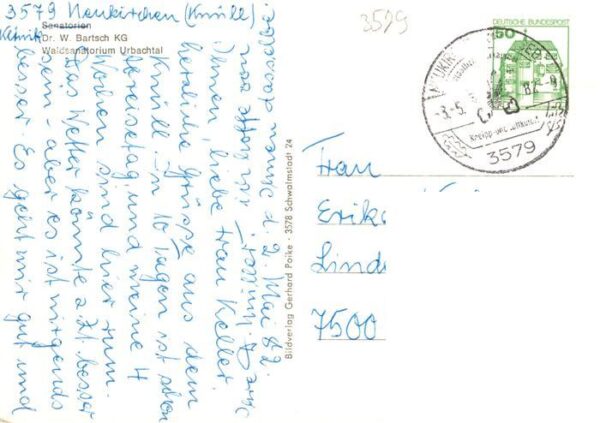 3579 Neukirchen (Knüll)
Klinik
Sanatorien
Dr. W. Bartsch KG
Waldsanatorium Urbachtal
2. Mai 82
Ihnen, liebe Frau Keller
herzliche Grüße aus dem
Knüll. In 10 Tagen ist schon
Abreisetag und meine 4
Wochen sind hier rum.
Das Wetter könnte z.Zt. besser
sein - aber es ist nirgends
besser. Es geht mir gut und
Ihnen dasselbe
Bildverlag Gerhard Poike · 3578 Schwalmstadt 24
3579
50
DEUTSCHE BUNDESPOST
3579
Frau
Erika
Lind
7500